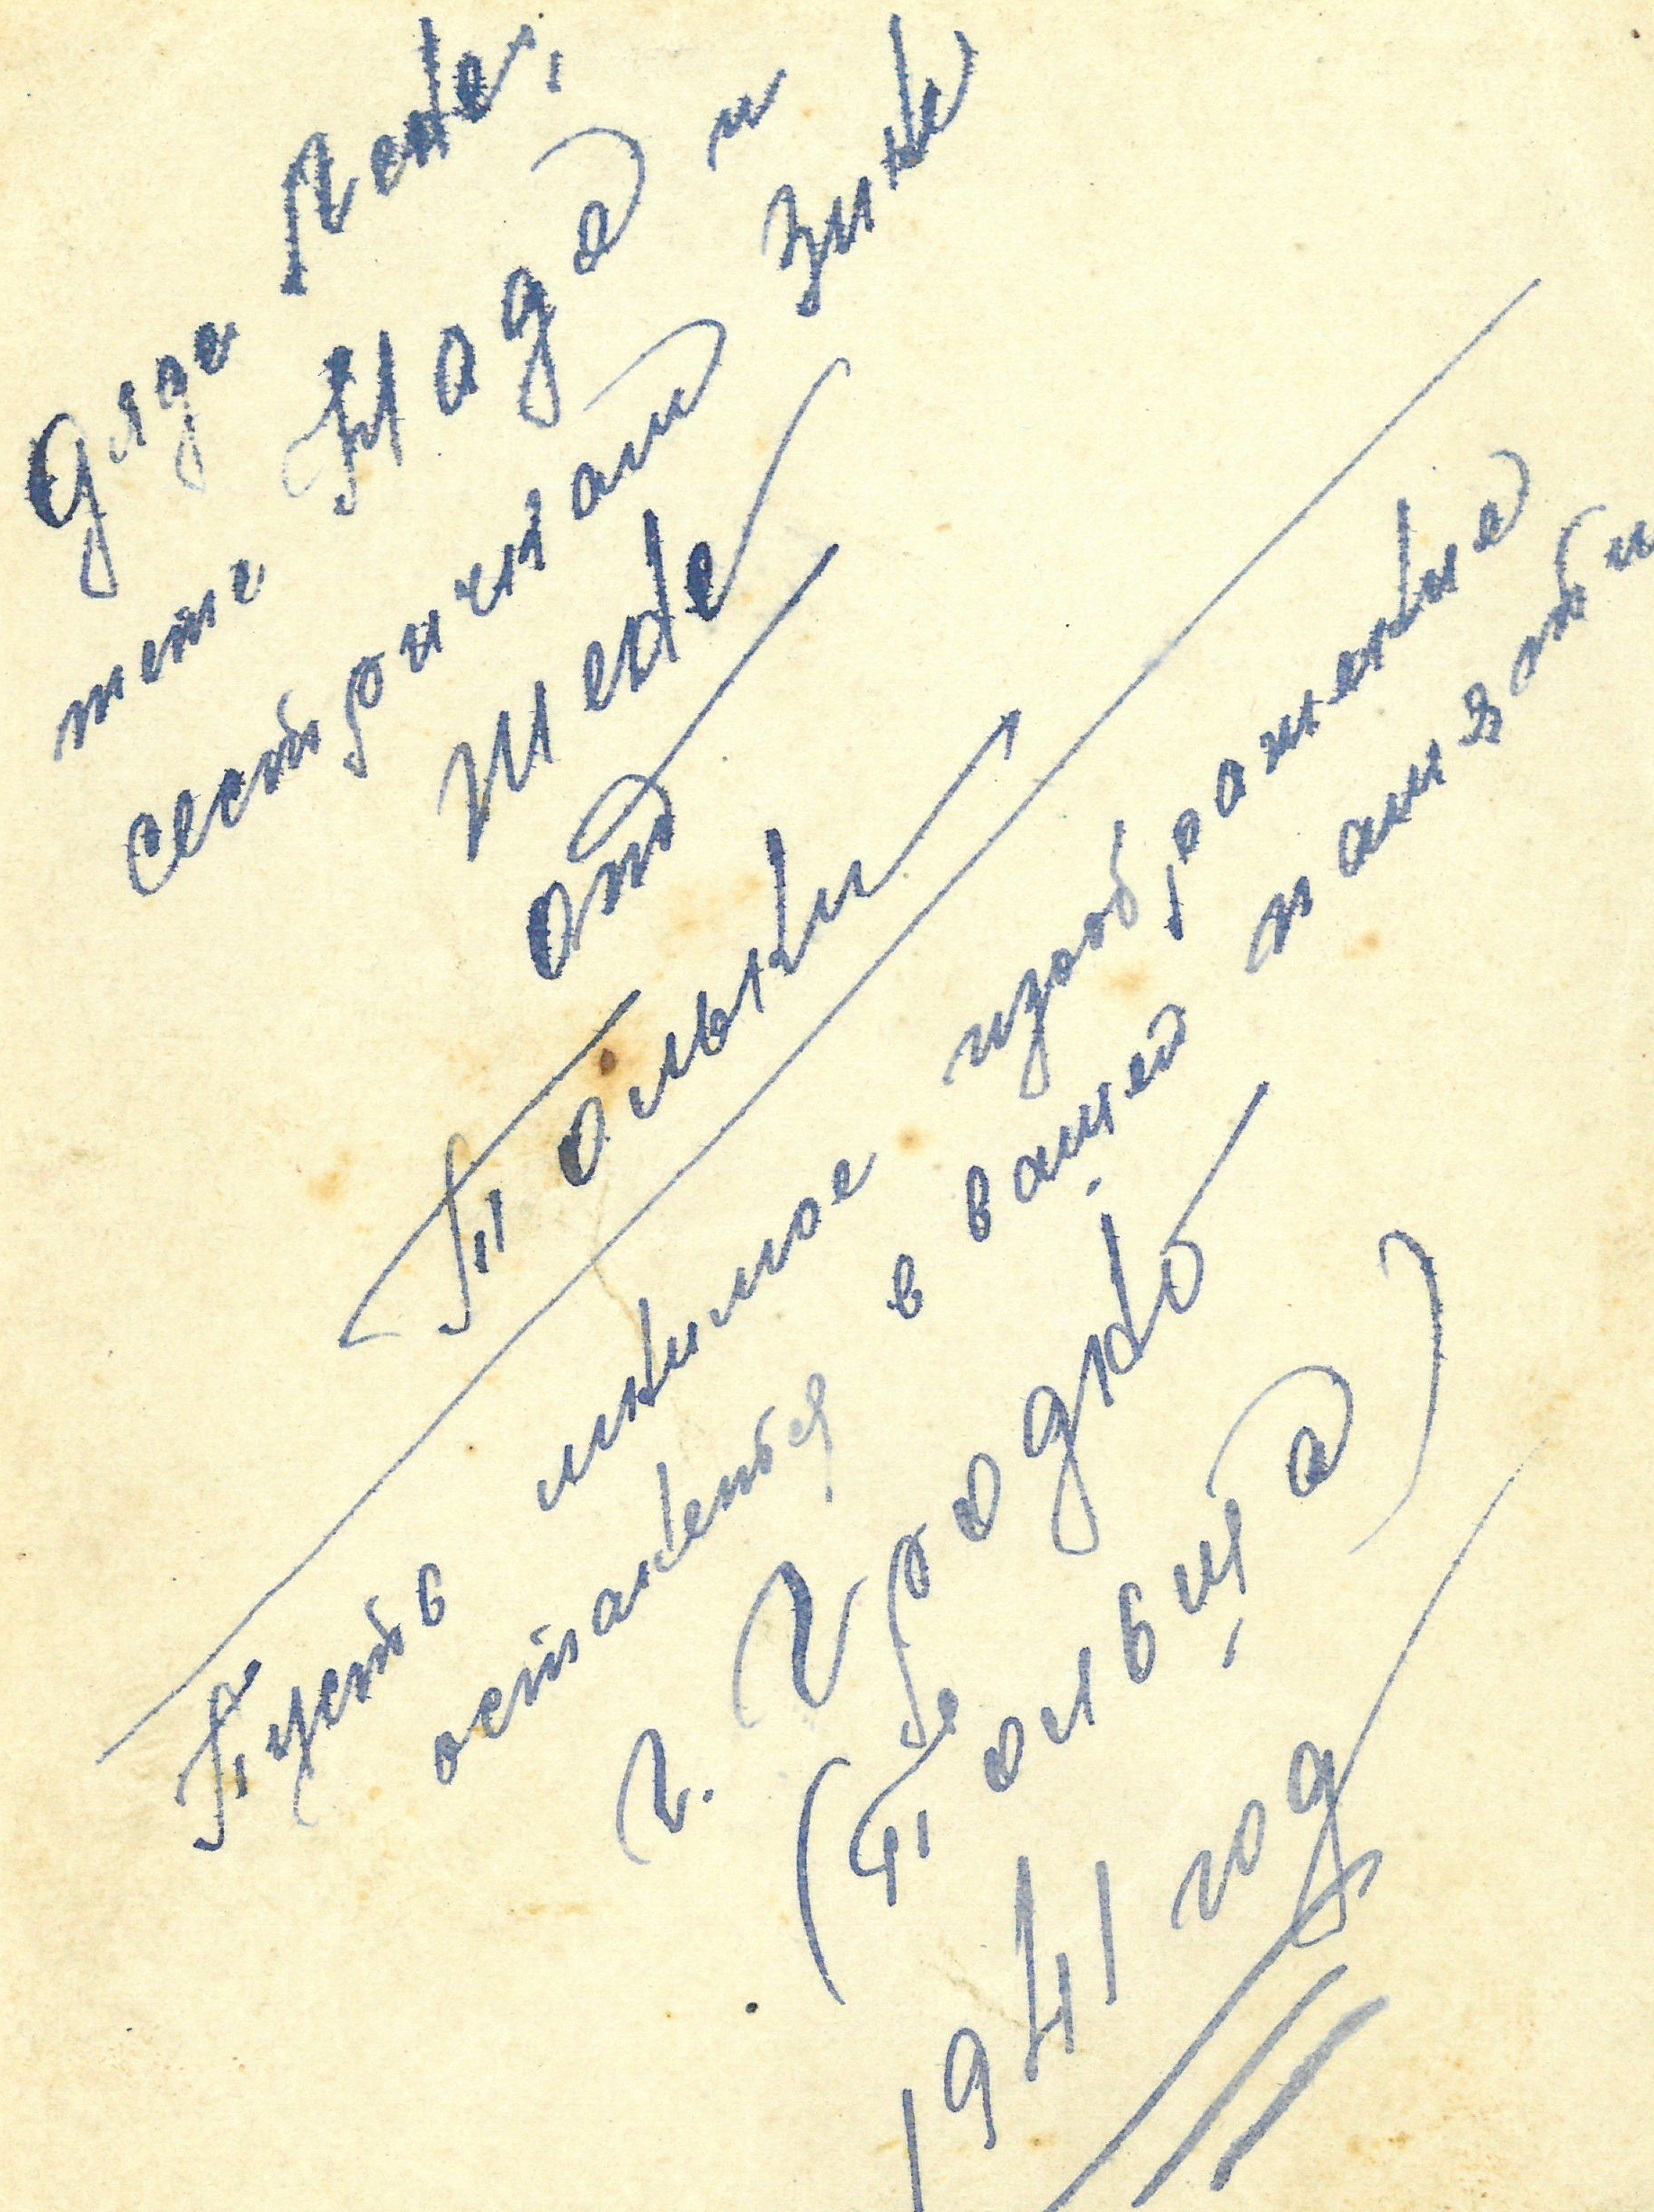 Дяде
тете Наде и
сестричкам Зине
от
Польки
Пусть мнимое изображение
останется в вашей памяти
г. Гродно
(Польща)
1941 год